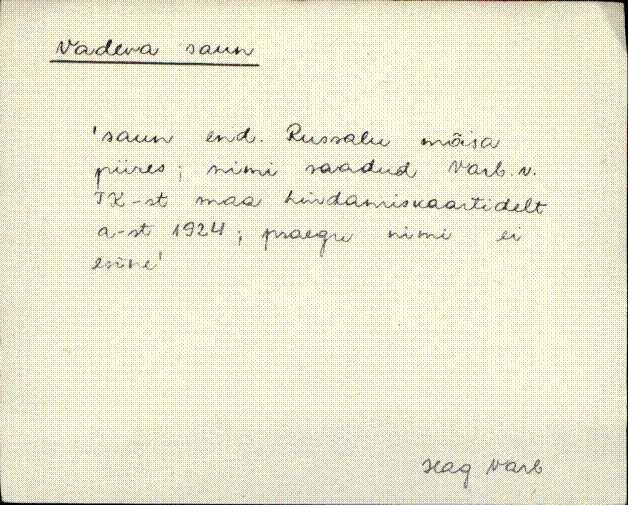 Vadeva saun
'saun end. Russalu mõisa
piires; nimi saadud Varb. v.
TK-st maa hindamiskaartidelt
a-st 1924; praegu nimi ei
esine'
Hag Varb